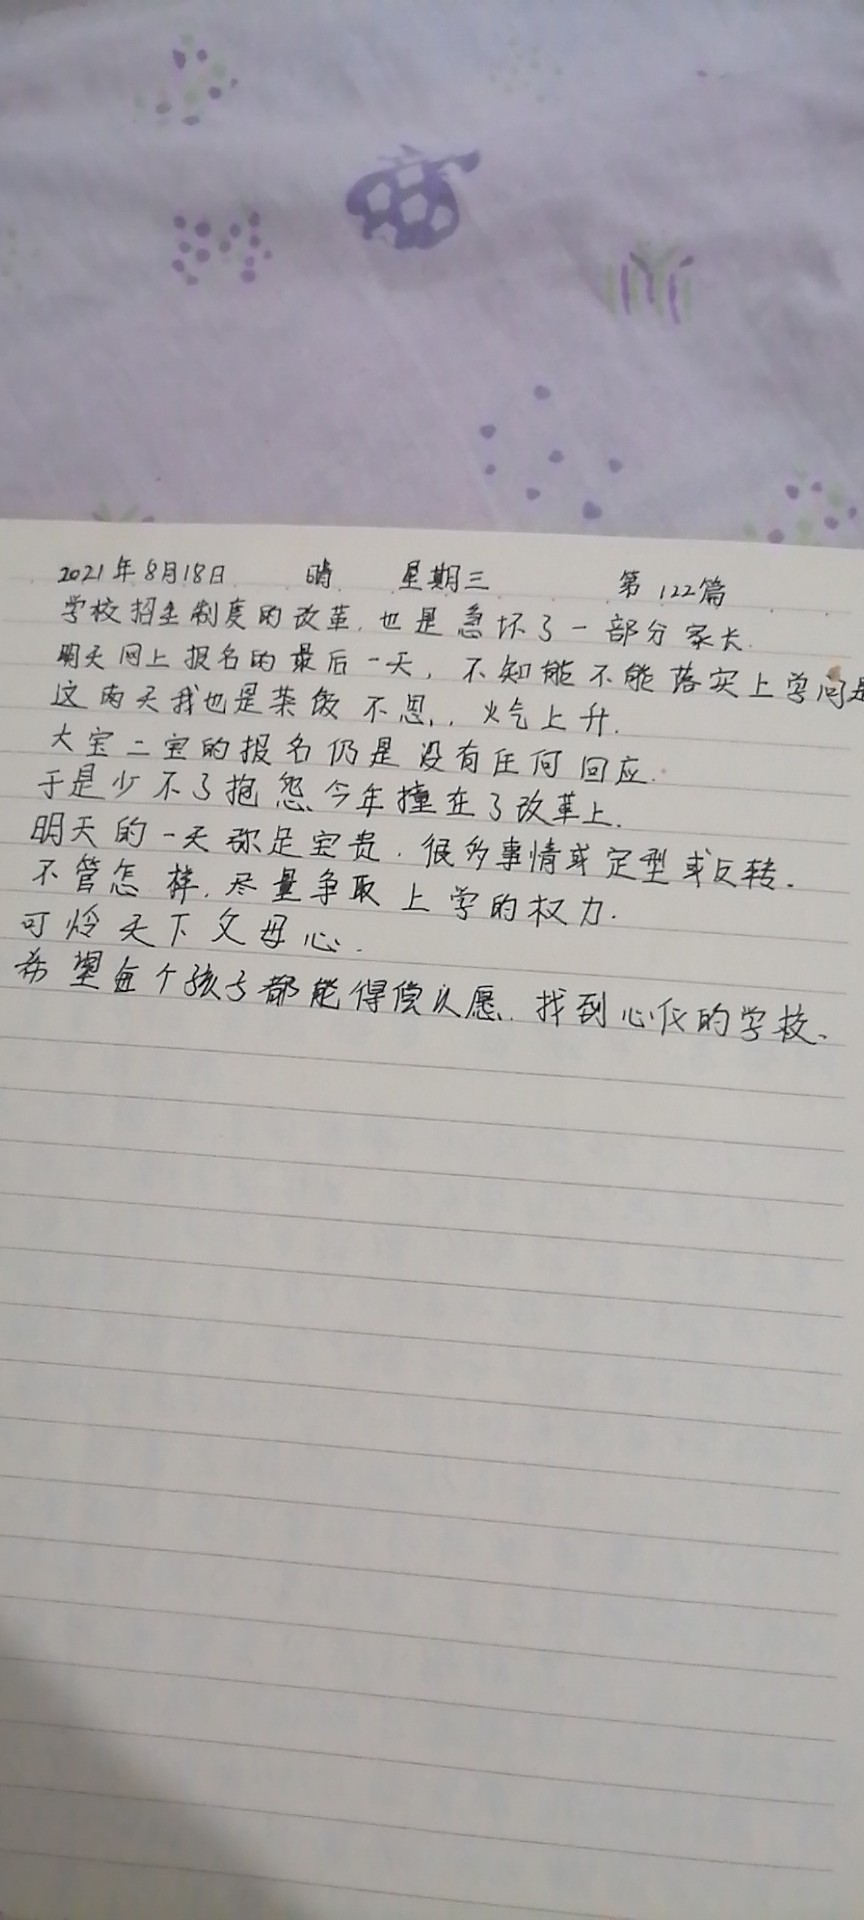 2021年8月18日 晴 星期三 第122篇
学校招生制度的改革,也是急坏了一部分家长.
明天网上报名的最后一天,不知能不能落实上学问是
这两天我也是茶饭不思,,火气上升.
大宝二宝的报名仍是没有任何回应.
于是少不了抱怨今年撞在了改革上.
明天的一天弥足宝贵.很多事情或定型或反转.
不管怎样,尽量争取上学的权力.
可怜天下父母心.
希望每个孩子都能得偿以愿.找到心仪的学校、